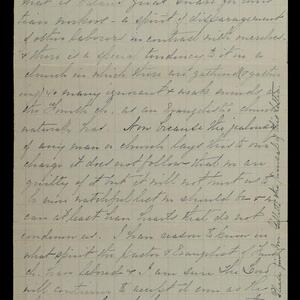 that is Satan's great snare for Chris
tian workers - a spirit of disparagement
of other laborers in contrast with ourselves.
& there is a special tendency to it in a
church in which there are gathered & gather
ing, so many ignorant & weak minds, as
the Fourth ch. as an Evangelistic church
naturally has. Now because the jealousy
of any man or church lays this to our
charge it does not follow that we are
guilty of it but it will not hurt us to
be more watchful lest we should be &
can at least have hearts that do not
condemn us. I have reason to know in
what spirit the pastor & Evangelist of
ch. have labored & I am sure the Lord
will continue to accept it even as